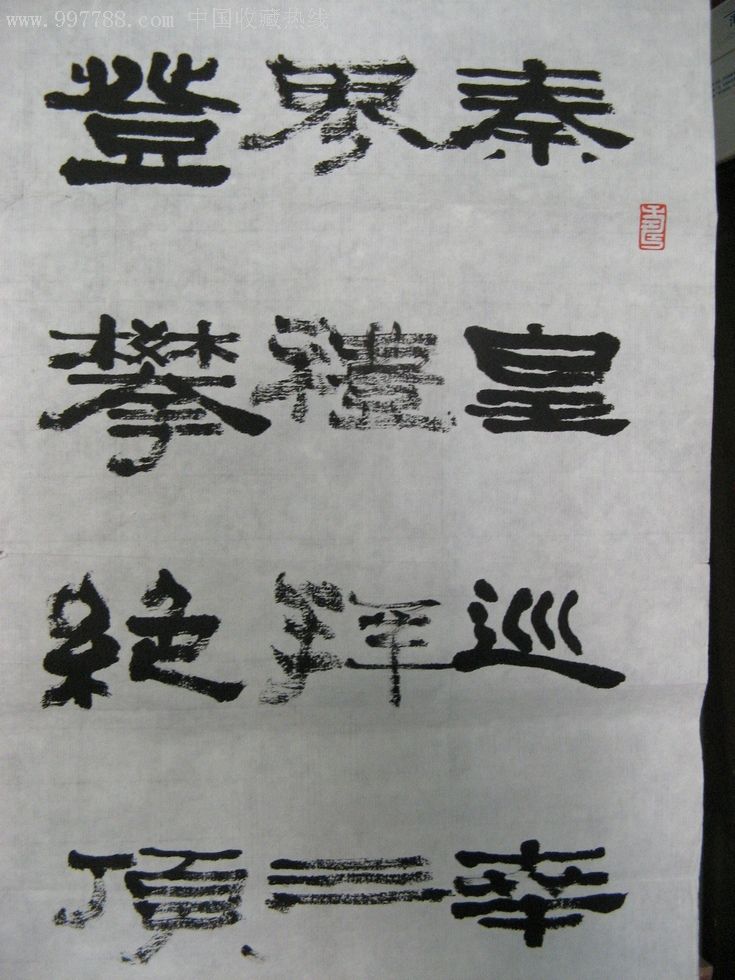 www.997788.com 中国收藏热线
秦皇巡幸
禮拜三
登攀絕頂